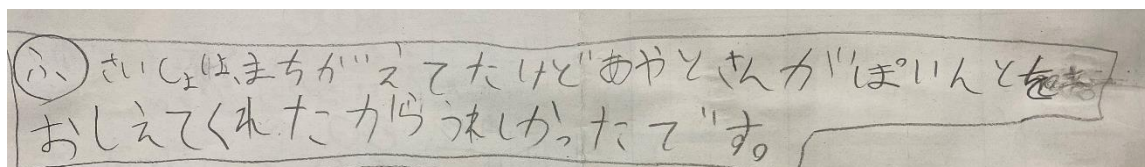 ふ さいしょは、まちがえてたけどあやとさんがぽいんとを
おしえてくれたからうれしかったです。